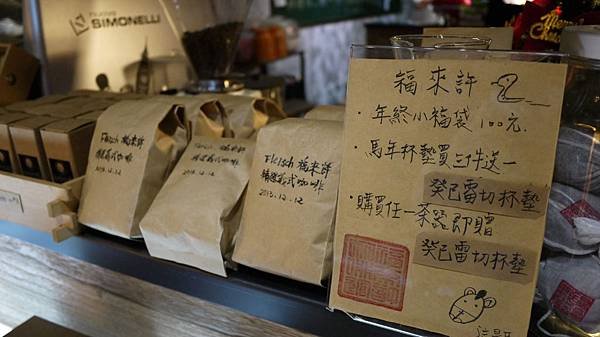 SIMONELLI
Fleisch 福來許
精選義式咖啡
2013.12.12
Fleisch 福來許
精選義式咖啡
2013.12.12
Fleisch 福來許
精選義式咖啡
2013.12.12
福來許
・年終小福袋100元
・馬年杯墊買三件送一
癸巳雷切杯墊
・購買任一茶器即贈
癸巳雷切杯墊